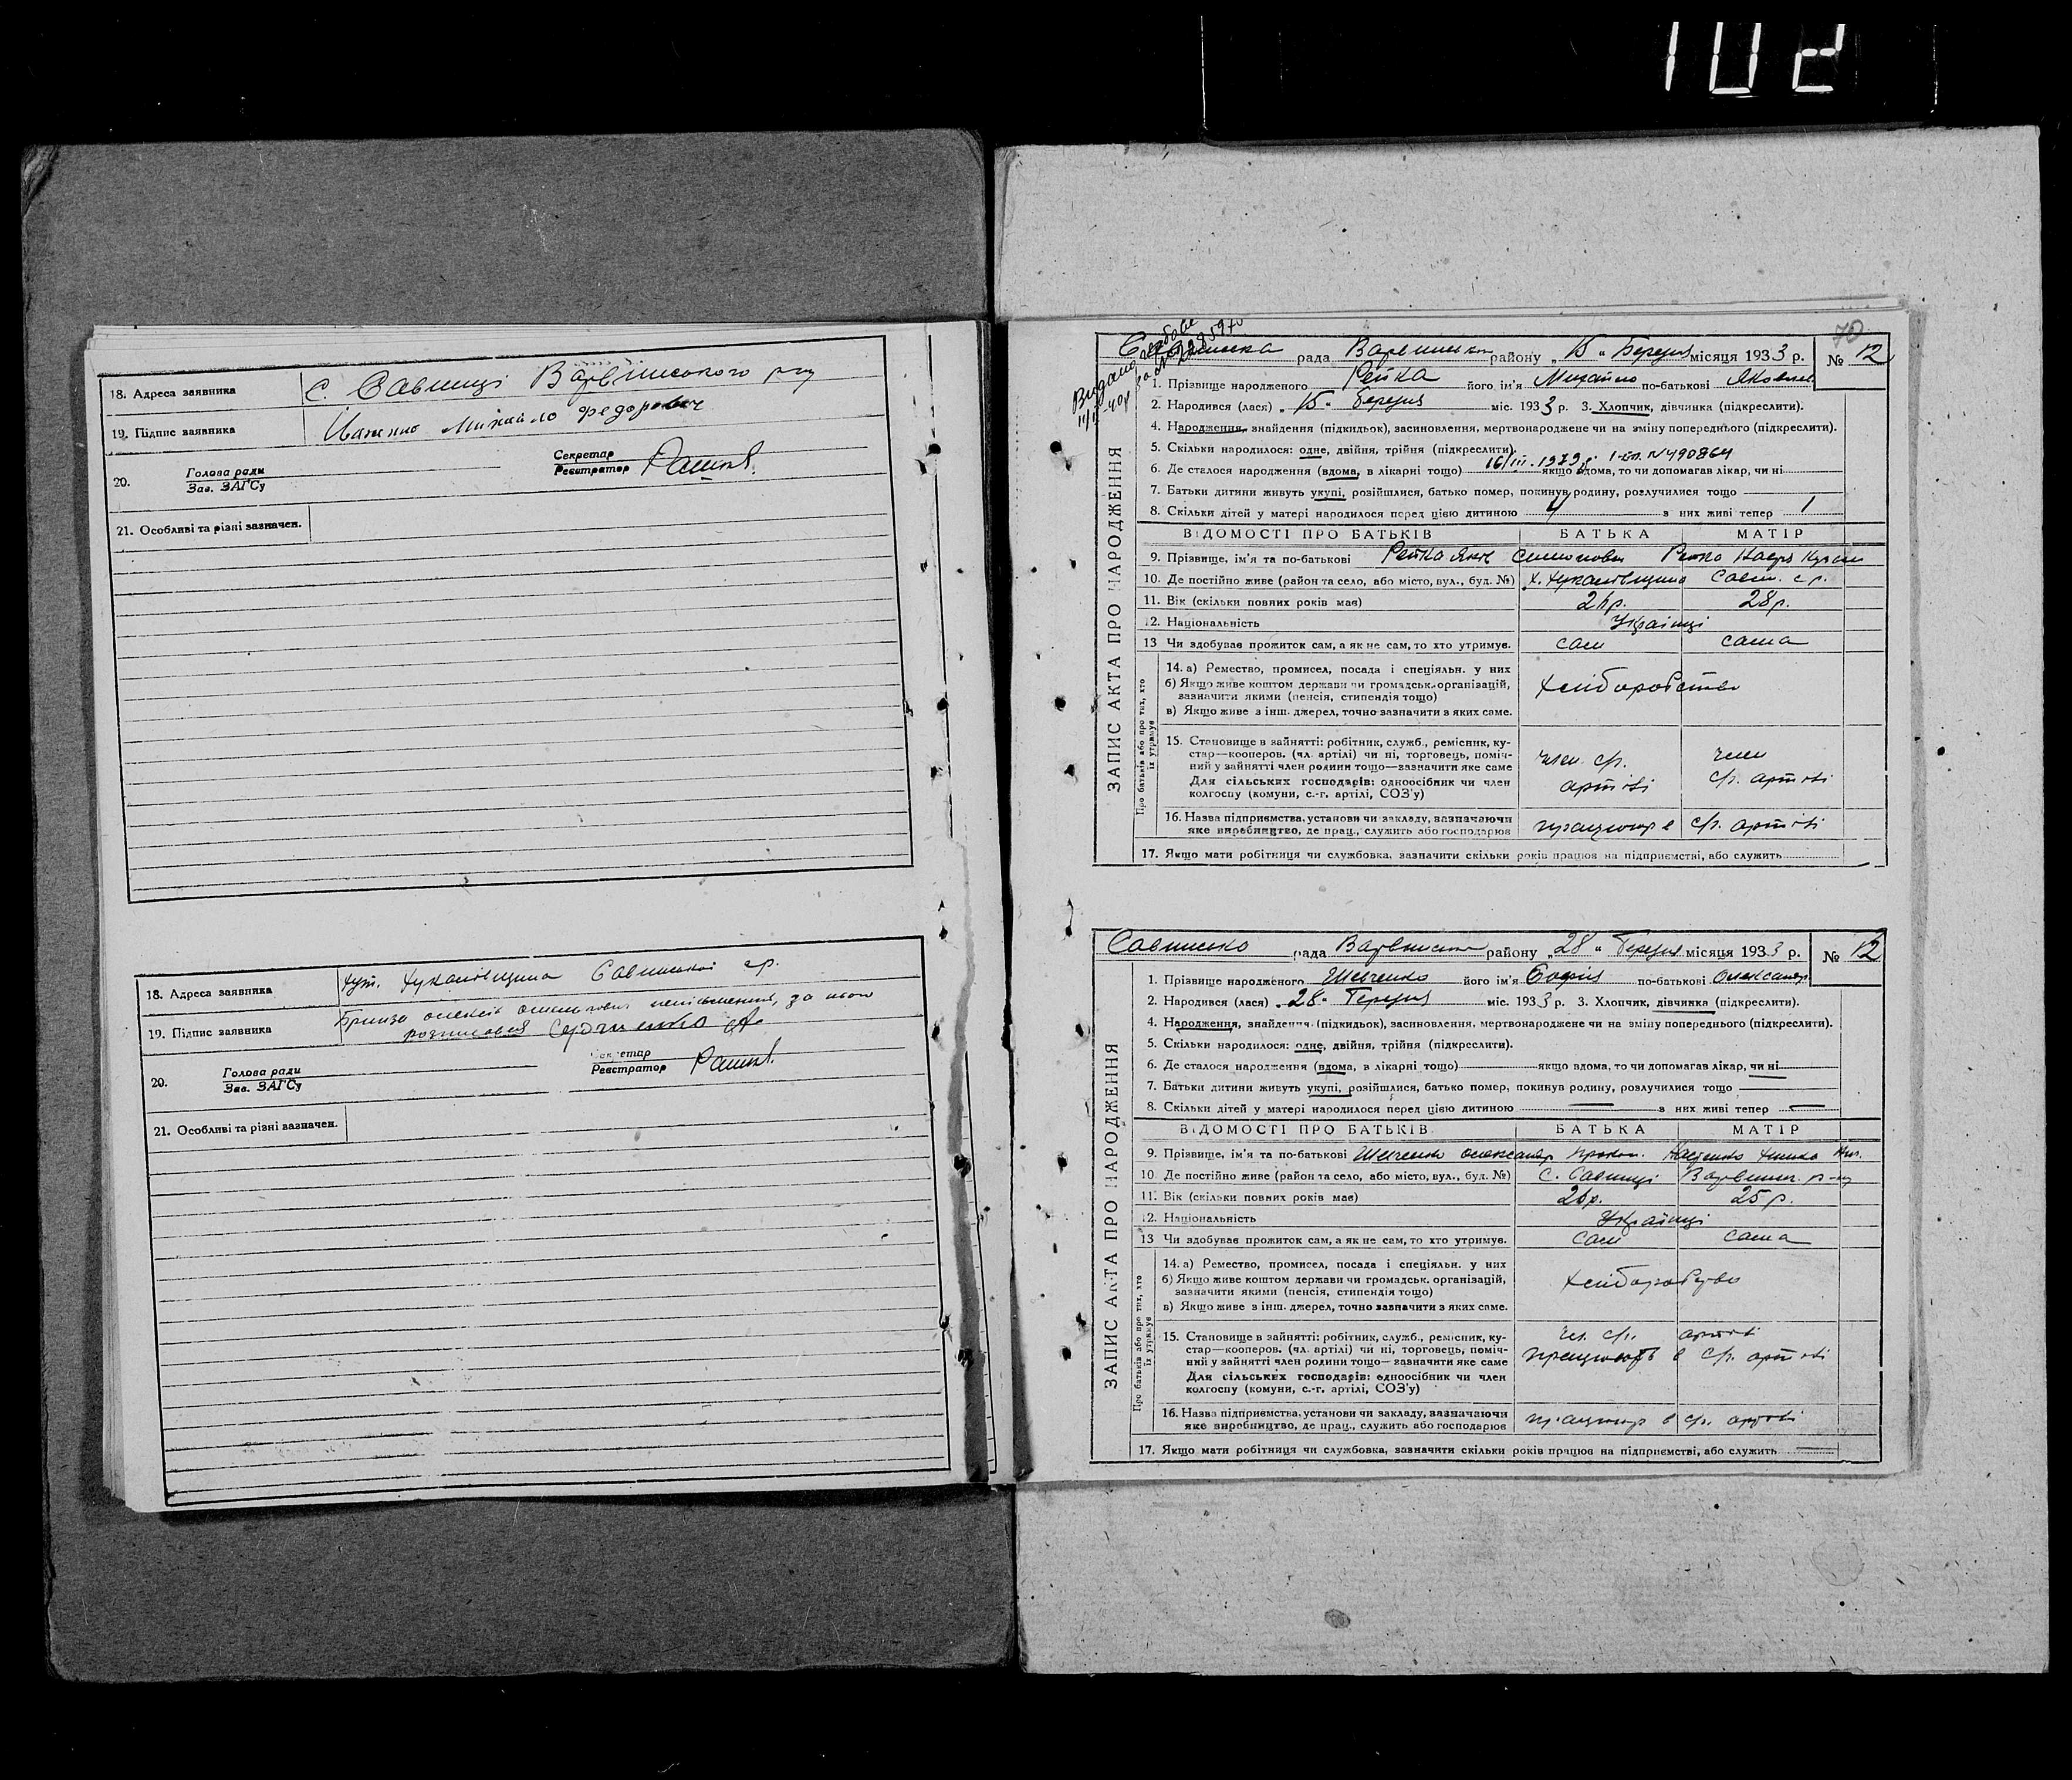 102
18. Адреса заявника с. Савинці Варвинського р-ну
19. Підпис заявника Михайло Федорович
20. Голова ради
Зав. ЗАГСу
Секретар
Реєстратор
21. Особливі та різні зазначен.
18. Адреса заявника хут. Савинської с.р.
19. Підпис заявника неписьменний, за нього
розписався
20. Голова ради
Зав. ЗАГСу
Секретар
Реєстратор
21. Особливі та різні зазначен.
70
рада району „15“ Березня місяця 1933 р. № 12
ЗАПИС АКТА ПРО НАРОДЖЕННЯ
1. Прізвище народженого Репка його ім'я Михайло по-батькові Якович
2. Народився (лася) „15“ Березня міс. 1933 р. 3. Хлопчик, дівчинка (підкреслити).
4. Народження, знайдення (підкидьок), засиновлення, мертвонароджене чи на зміну попереднього (підкреслити).
5. Скільки народилося: одне, двійня, трійня (підкреслити).
16/III-1979 р. N 490864
6. Де сталося народження (вдома, в лікарні тощо) якщо вдома, то чи допомагав лікар, чи ні
7. Батьки дитини живуть укупі, розійшлися, батько помер, покинув родину, розлучилися тощо
8. Скільки дітей у матері народилося перед цією дитиною 4 з них живі тепер 1
ВІДОМОСТІ ПРО БАТЬКІВ БАТЬКА МАТІР
9. Прізвище, ім'я та по-батькові Репка Яків Семенович Репка
10. Де постійно живе (район та село, або місто, вул., буд. №) Савин. с.р.
11. Вік (скільки повних років має) 26 р. 28 р.
12. Національність Українці
13 Чи здобуває прожиток сам, а як не сам, то хто утримує. сам сама
Про батьків або про тих, хто їх утримує
14. а) Ремество, промисел, посада і спеціяльн. у них
б) Якщо живе коштом держави чи громадськ. організацій,
зазначити якими (пенсія, стипендія тощо)
хліборобство
в) Якщо живе з інш. джерел, точно зазначити з яких саме.
15. Становище в зайнятті: робітник, служб., ремісник, ку-
стар—кооперов. (чл. артілі) чи ні, торговець, поміч-
ний у зайнятті член родини тощо—зазначити яке саме
Для сільських господарів: одноосібник чи член
колгоспу (комуни, с.-г. артілі, СОЗ'у)
член с/г. артілі член с/г. артілі
16. Назва підприємства, установи чи закладу, зазначаючи
яке виробництво, де прац., служить або господарює
працюют в с/г. артілі
17. Якщо мати робітниця чи службовка, зазначити скільки років працює на підприємстві, або служить
Савинсько рада району „28“ Березня місяця 1933 р. № 12
ЗАПИС АКТА ПРО НАРОДЖЕННЯ
1. Прізвище народженого Шевченко його ім'я Софія по-батькові Олександр.
2. Народився (лася) „28“ Березня міс. 1933 р. 3. Хлопчик, дівчинка (підкреслити).
4. Народження, знайдення (підкидьок), засиновлення, мертвонароджене чи на зміну попереднього (підкреслити).
5. Скільки народилося: одне, двійня, трійня (підкреслити).
6. Де сталося народження (вдома, в лікарні тощо) якщо вдома, то чи допомагав лікар, чи ні
7. Батьки дитини живуть укупі, розійшлися, батько помер, покинув родину, розлучилися тощо
8. Скільки дітей у матері народилося перед цією дитиною — з них живі тепер —
ВІДОМОСТІ ПРО БАТЬКІВ БАТЬКА МАТІР
9. Прізвище, ім'я та по-батькові Шевченко Олександр
10 Де постійно живе (район та село, або місто, вул., буд. №) с. Савинці Варвинс. р-ну
11. Вік (скільки повних років має) 26 р. 25 р.
12. Національність Українці
13 Чи здобуває прожиток сам, а як не сам, то хто утримує. сам сама
Про батьків або про тих, хто їх утримує
14. а) Ремество, промисел, посада і спеціяльн. у них
б) Якщо живе коштом держави чи громадськ. організацій,
зазначити якими (пенсія, стипендія тощо)
хліборобство
в) Якщо живе з інш. джерел, точно зазначити з яких саме.
15. Становище в зайнятті: робітник, служб., ремісник, ку-
стар—кооперов. (чл. артілі) чи ні, торговець, поміч-
ний у зайнятті член родини тощо—зазначити яке саме
Для сільських господарів: одноосібник чи член
колгоспу (комуни, с.-г. артілі, СОЗ'у)
чл. с/г. артілі
працюють в с/г. артілі
16. Назва підприємства, установи чи закладу, зазначаючи
яке виробництво, де прац., служить або господарює
працюют в с/г. артілі
17. Якщо мати робітниця чи службовка, зазначити скільки років працює на підприємстві, або служить —